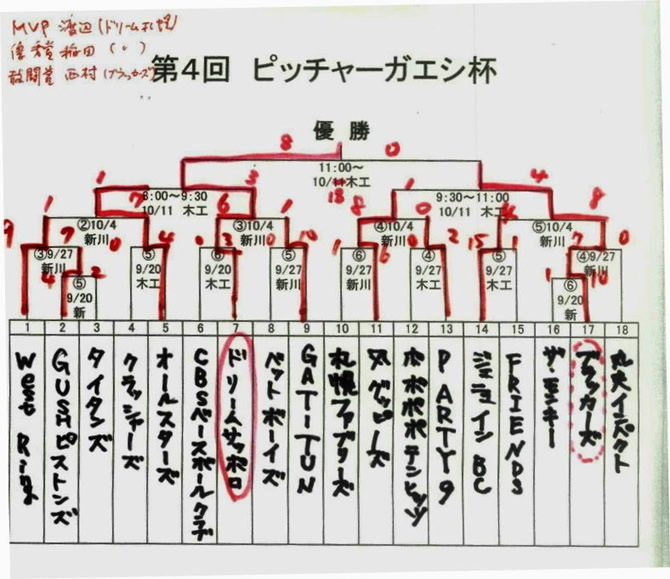 MVP 渡辺(ドリームさっぽろ)
優秀賞 稲田 (〃)
敢闘賞 西村(ブラッカーズ)
第4回 ピッチャーガエシ杯
優勝
8 0
11:00〜
10/11木工
1 3 18 4
8:00〜9:30
10/11 木工
9:30〜11:00
10/11 木工
1 7 6 1 8 0 8
②10/4
新川
③10/4
新川
④10/4
新川
⑤10/4
新川
9 7 0 4 0 3 0 10 1 6 0 2 15 1 7 0
③9/27
新川
⑤
9/20
木工
⑥
9/20
木工
⑤
9/27
新川
⑥
9/27
新川
④
9/20
木工
⑤
9/27
木工
④9/27
新川
4 2 1 10
⑤
9/20
新
⑥
9/20
新
1 2 3 4 5 6 7 8 9 10 11 12 13 14 15 16 17 18
West Ring
GUSHピストンズ
タイタンズ
クラッシャーズ
オールスターズ
CBSベースボールクラブ
ドリームサッポロ
ペットボーイズ
GATTUN
札幌ファブリーズ
ポポポポテンヒッツ
PARTY9
ジェニュインBC
FRIENDS
ザ・モンキー
ブラッカーズ